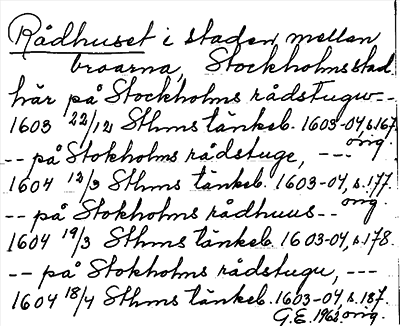 Rådhuset i staden mellan
broarna, Stockholms stad
här på Stockholms rådstuguu--
1603 22/12 Sthms tänkeb. 1603-04, s.167.
orig.
-- på Stokholms rådstuge, ---
1604 12/3 Sthms tänkeb. 1603-04, s.177.
orig.
-- på Stokholms rådhuus --
1604 19/3 Sthms tänkeb. 1603-04, s.178.
-- på Stokholms rådstugu, ---
1604 18/4 Sthms tänkeb. 1603-04, s.187.
G.E. 1962 orig.